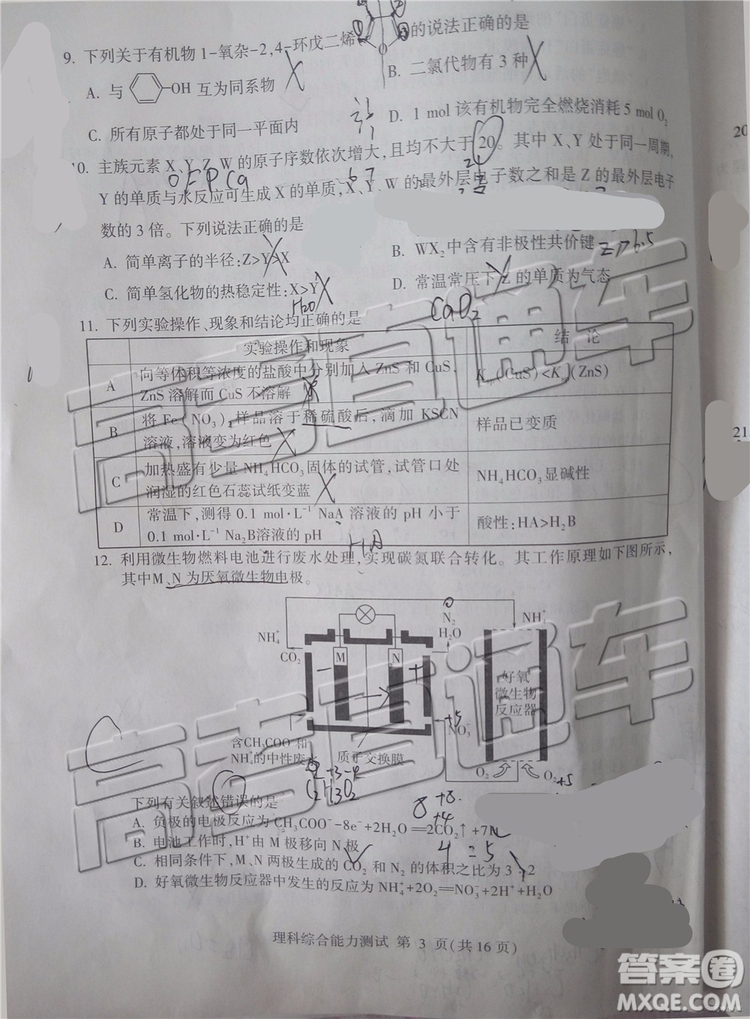 9. 下列关于有机物1-氧杂-2,4-环戊二烯 的说法正确的是
A. 与 -OH 互为同系物
B. 二氯代物有3种
C. 所有原子都处于同一平面内
D. 1 mol 该有机物完全燃烧消耗5 mol O₂
10. 主族元素X、Y、Z、W的原子序数依次增大,且均不大于20。其中X、Y处于同一周期,
Y的单质与水反应可生成X的单质,X、Y、W的最外层电子数之和是Z的最外层电子
数的3倍。下列说法正确的是
A. 简单离子的半径:Z>Y>X
B. WX₂中含有非极性共价键
C. 简单氢化物的热稳定性:X>Y
D. 常温常压下Z的单质为气态
O F P Ca
6 7
Z>6.5
H₂O
CaO₂
11. 下列实验操作、现象和结论均正确的是
实验操作和现象 结 论
A 向等体积等浓度的盐酸中分别加入ZnS和CuS,
ZnS溶解而CuS不溶解
(CuS)<K (ZnS)
B 将Fe(NO₃)₂样品溶于稀硫酸后,滴加KSCN
溶液,溶液变为红色
样品已变质
C 加热盛有少量NH₄HCO₃固体的试管,试管口处
润湿的红色石蕊试纸变蓝
NH₄HCO₃显碱性
D 常温下,测得0.1 mol·L⁻¹ NaA溶液的pH小于
0.1 mol·L⁻¹ Na₂B溶液的pH
酸性:HA>H₂B
HA
12. 利用微生物燃料电池进行废水处理,实现碳氮联合转化。其工作原理如下图所示,
其中M、N为厌氧微生物电极。
NH₄⁺
CO₂
M
N
N₂
H₂O
NH₄⁺
NO₃⁻
好氧
微生物
反应器
O₂
O₂
含CH₃COO⁻和
NH₄⁺的中性废水
质子交换膜
+5
下列有关叙述错误的是
A. 负极的电极反应为CH₃COO⁻-8e⁻+2H₂O═2CO₂↑+7H
B. 电池工作时,H⁺由M极移向N极
C. 相同条件下,M、N两极生成的CO₂和N₂的体积之比为3:2
D. 好氧微生物反应器中发生的反应为NH₄⁺+2O₂═NO₃⁻+2H⁺+H₂O
理科综合能力测试 第 3 页(共16页)
20
21
高考直通车
高考直通车
答案圈
MXQE.COM